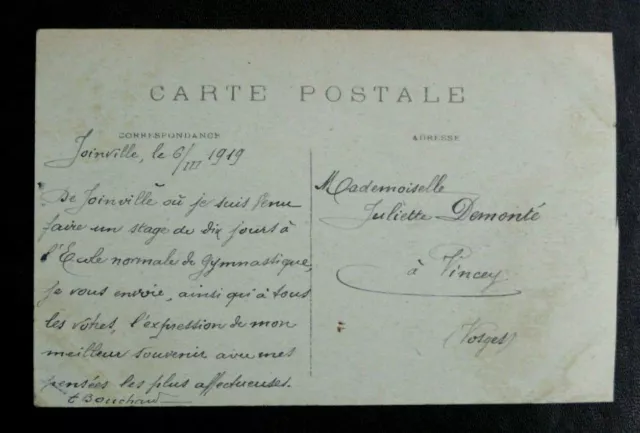 CARTE POSTALE
CORRESPONDANCE
ADRESSE
Joinville, le 6/III 1919
De Joinville où je suis venu
faire un stage de dix jours à
l'École normale de Gymnastique,
je vous envoie, ainsi qu'à tous
les vôtres, l'expression de mon
meilleur souvenir avec mes
pensées les plus affectueuses.
Bouchard
Mademoiselle
Juliette Demonté
à Vincey
(Vosges)